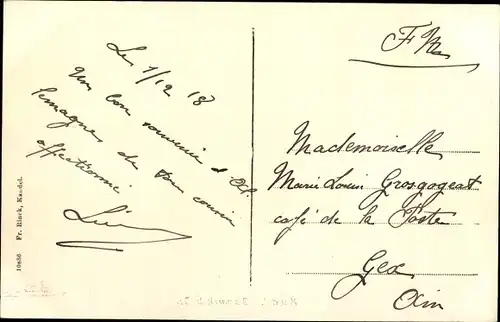 Le 1/12 18
Un bon souvenir d'Al
lemagne de ton cousin
affectionné
F M
Mademoiselle
Marie Louise Grosgogeat
café de la Poste
Gex
Ain
10836 Fr. Rinck, Kandel.